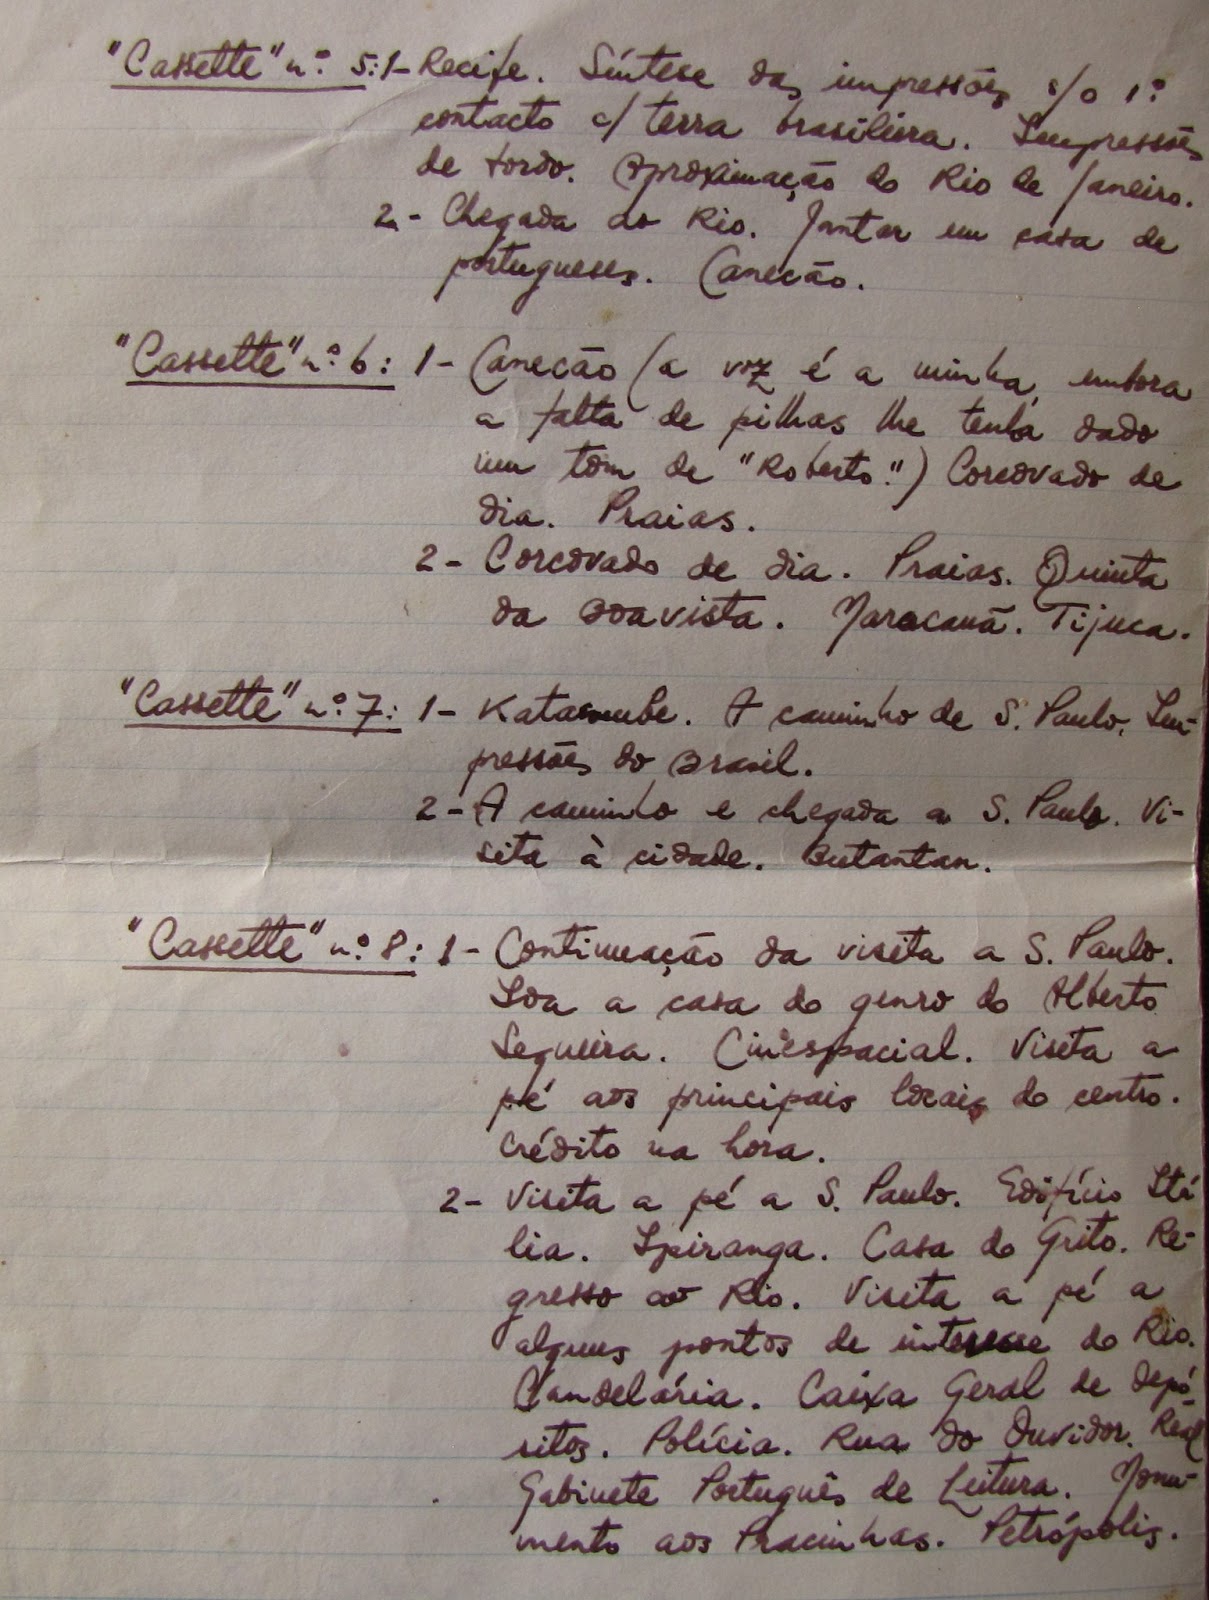 "Cassette" nº 5: 1- Recife. Síntese das impressões s/o 1º
contacto c/ terra brasileira. Impressões
de bordo. Aproximação do Rio de Janeiro.
2- Chegada ao Rio. Jantar em casa de
portugueses. Canecão.
"Cassette" nº 6: 1- Canecão (a voz é a minha, embora
a falta de pilhas lhe tenha dado
um tom de "Roberto".) Corcovado de
dia. Praias.
2- Corcovado de dia. Praias. Quinta
da Boavista. Maracanã. Tijuca.
"Cassette" nº 7: 1- Katacumbe. A caminho de S. Paulo. Im-
pressões do Brasil.
2- A caminho e chegada a S. Paulo. Vi-
sita à cidade. Butantan.
"Cassette" nº 8: 1- Continuação da visita a S. Paulo.
Ida a casa do genro do Alberto
Sequeira. Cinespacial. Visita a
pé aos principais locais do centro.
Crédito na hora.
2- Visita a pé a S. Paulo. Edifício Itá
lia. Ipiranga. Casa do Grito. Re-
gresso ao Rio. Visita a pé a
alguns pontos de interesse do Rio.
Candelária. Caixa Geral de Depó-
sitos. Polícia. Rua do Ouvidor. Real
Gabinete Português de Leitura. Monu-
mento aos Pracinhas. Petrópolis.